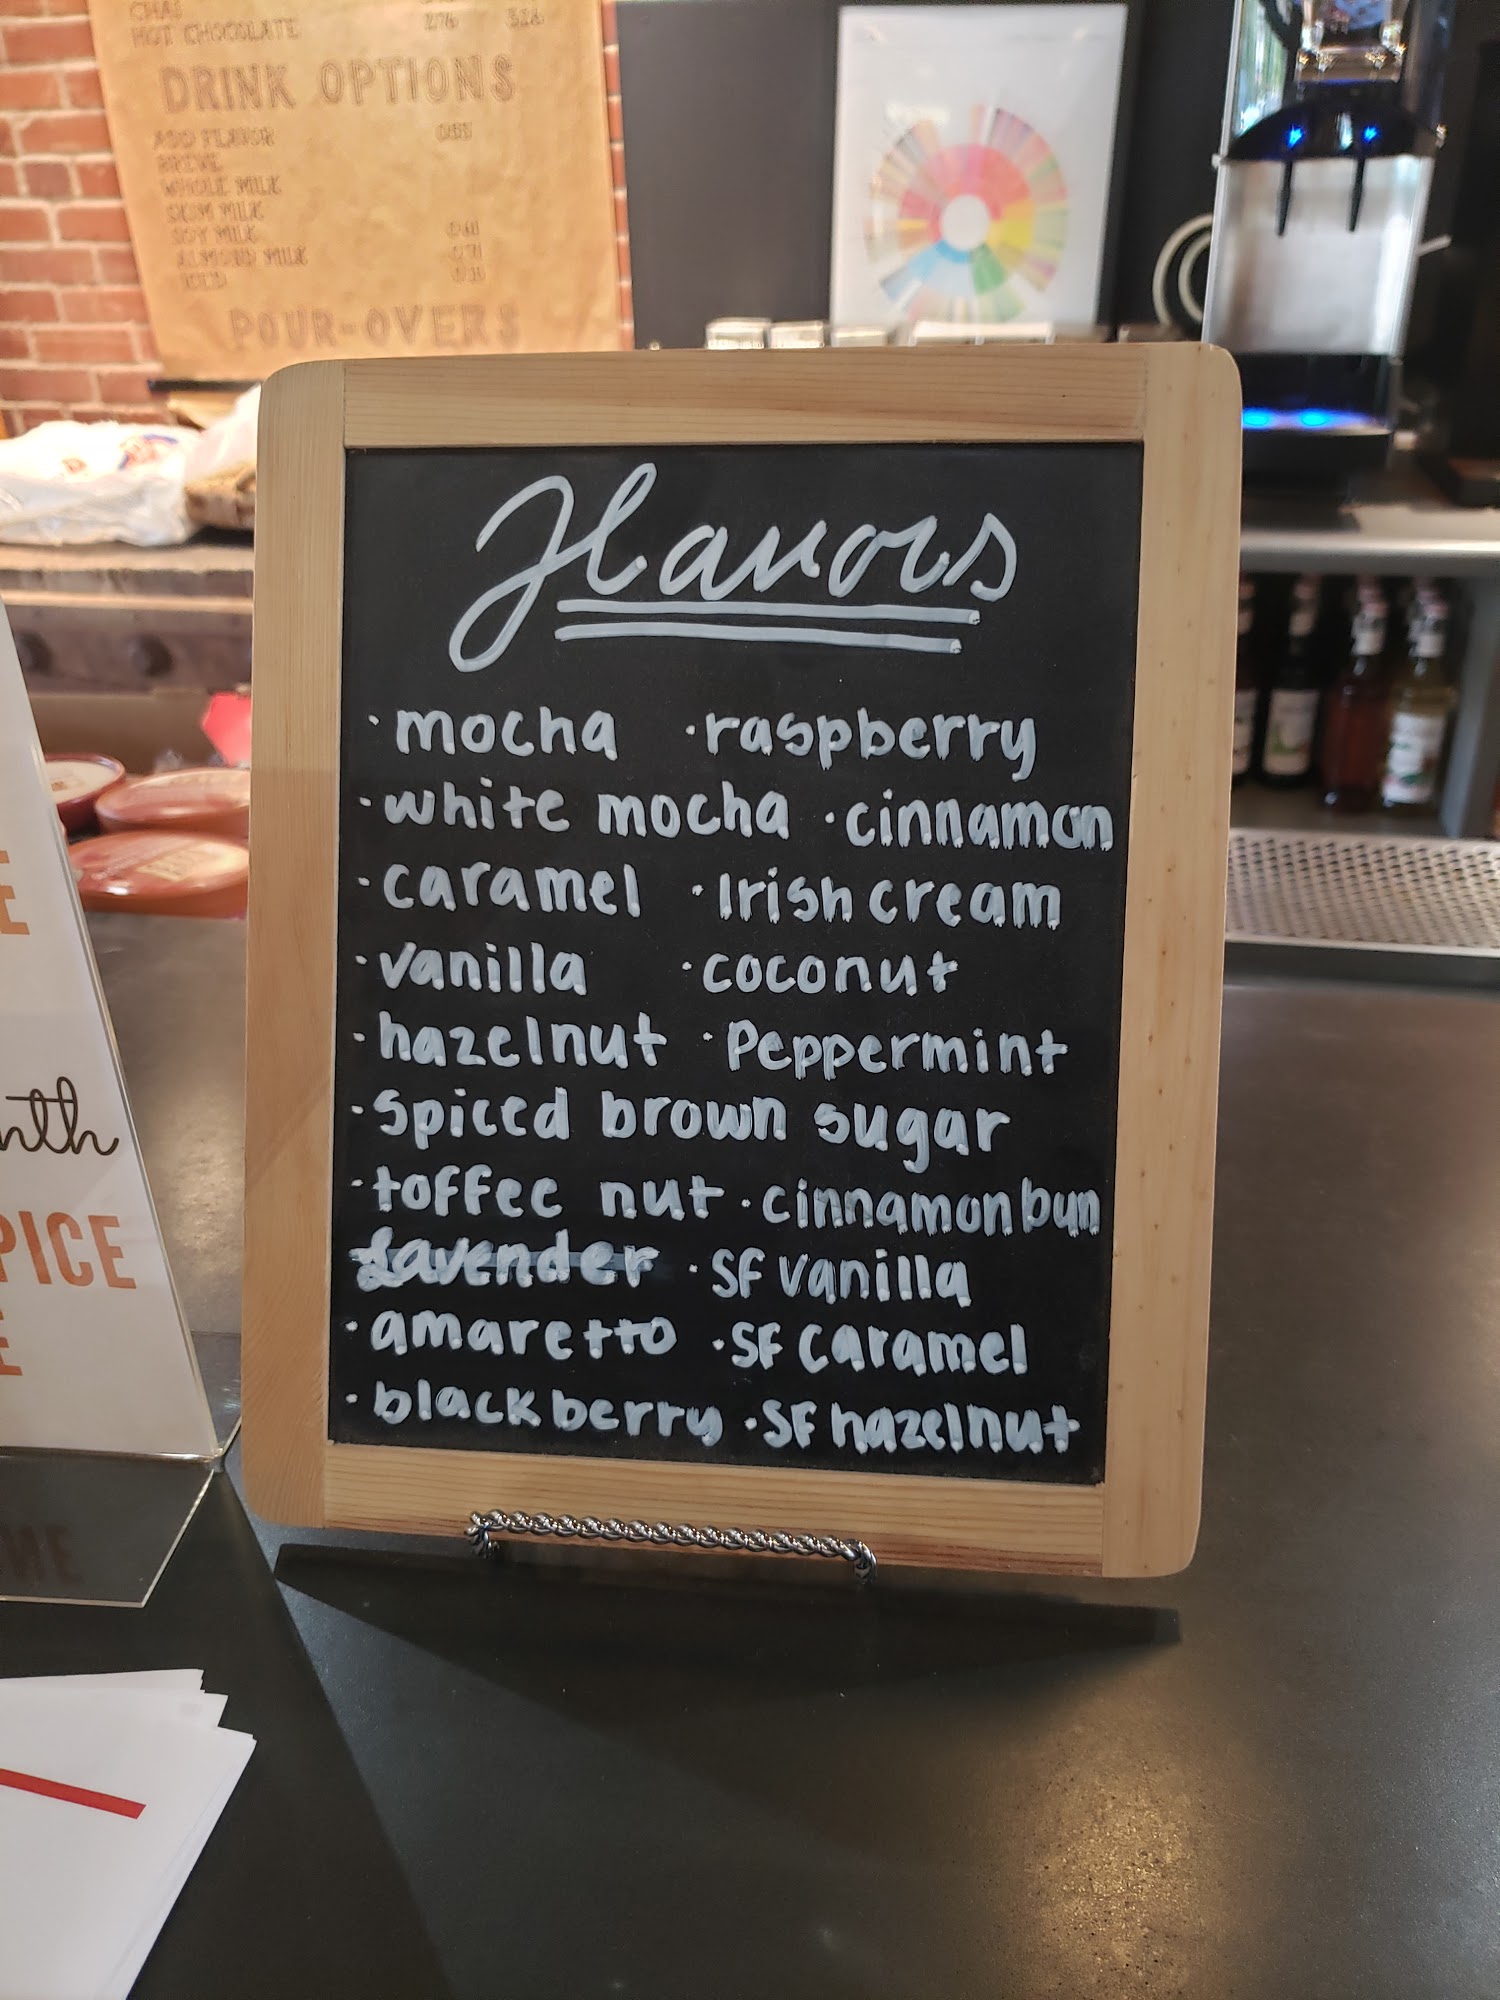 CHAI
HOT CHOCOLATE 2.76 3.22
DRINK OPTIONS
ADD FLAVOR 0.55
BREVE
WHOLE MILK
SKIM MILK
SOY MILK
ALMOND MILK
ICED
POUR-OVERS
Flavors
· mocha · raspberry
· white mocha · cinnamon
· caramel · Irish cream
· vanilla · coconut
· hazelnut · Peppermint
· spiced brown sugar
· toffee nut · cinnamon bun
Lavender · SF vanilla
· amaretto · SF caramel
· blackberry · SF hazelnut
E
nth
PICE
E